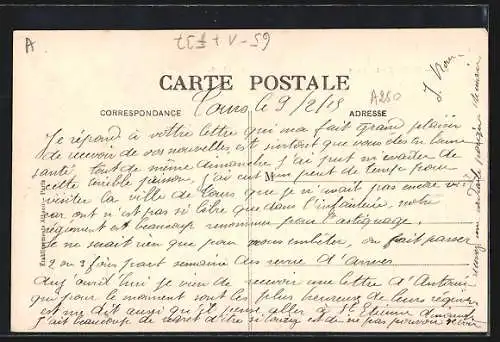 A
CARTE POSTALE
CORRESPONDANCE
ADRESSE
Tours le 9/2/15
A280
Je répond à votre lettre qui ma fait grand plaisir
de recevoir de vos nouvelles, et surtout que vous êtes en bonne
santé, tout de même dimanche j'ai peut
cette terrible j'ai eut un peut de temp pour
visiter la ville de Tours que je n'avait pas encore vu
car ont n'est pas si libre que dans l'infanterie, notre
régiment est beaucoup renommer pour l'astiquage.
M
ne rien que pour nous embêter, on fait passer
2 ou 3 fois part semaine des revue d'armes
aujourd'hui je vien de recevoir une lettre d'Antonin
qui pour le moment sont les plus heureuse de leurs régiment
est me dit aussi qu'il pense aller à St Etienne dimanche
beaucoup de regret d'être si est de ne pas pouvoir